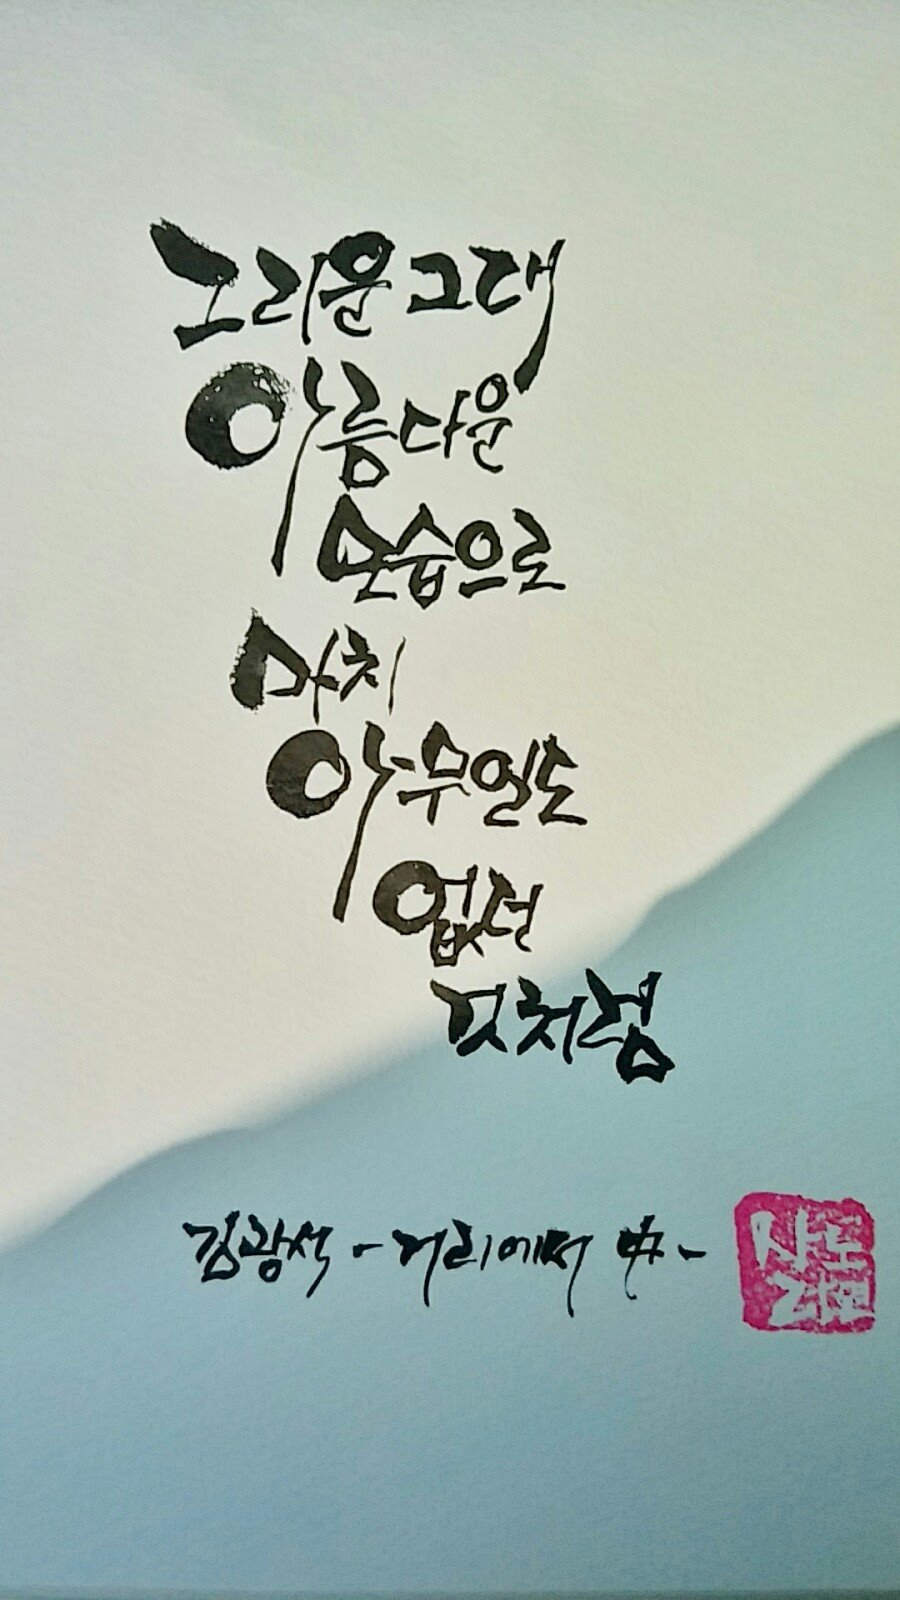 그리운 그대
아름다운
모습으로
마치
아무일도
없던
것처럼
김광석 - 거리에서 中 -